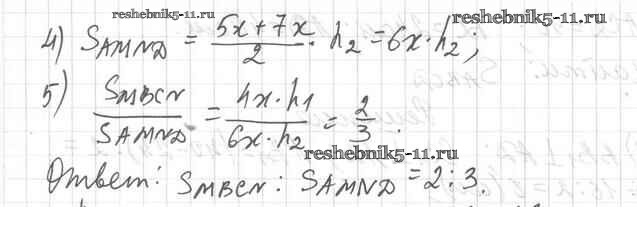 reshebnik5-11.ru
reshebnik5-11.ru
4) SAMND = (5x+7x)/2 · h2 = 6x·h2;
5) SMBCN/SAMND = (4x·h1)/(6x·h2) = 2/3.
reshebnik5-11.ru
Ответ: SMBCN : SAMND = 2:3.